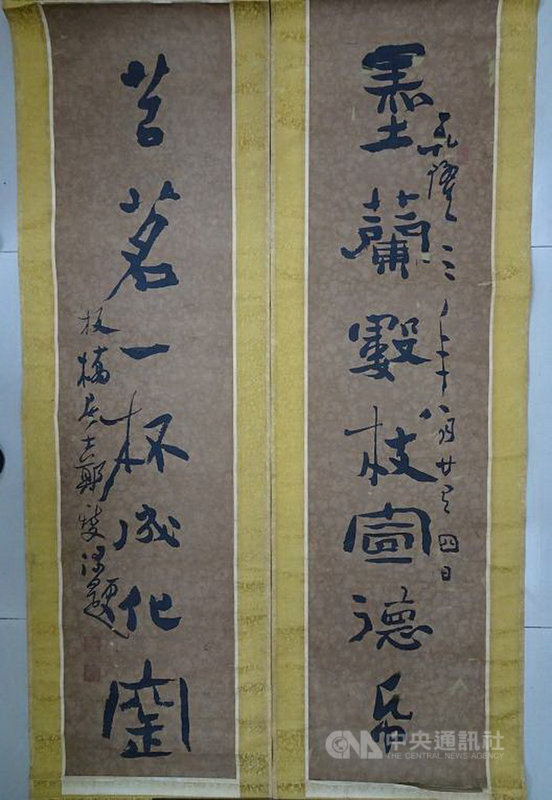 墨蘭數枝宣德帋
乾隆二年八月廿四日
苦茗一杯成化窯
板橋居士鄭燮題
中央通訊社
THE CENTRAL NEWS AGENCY
CNA